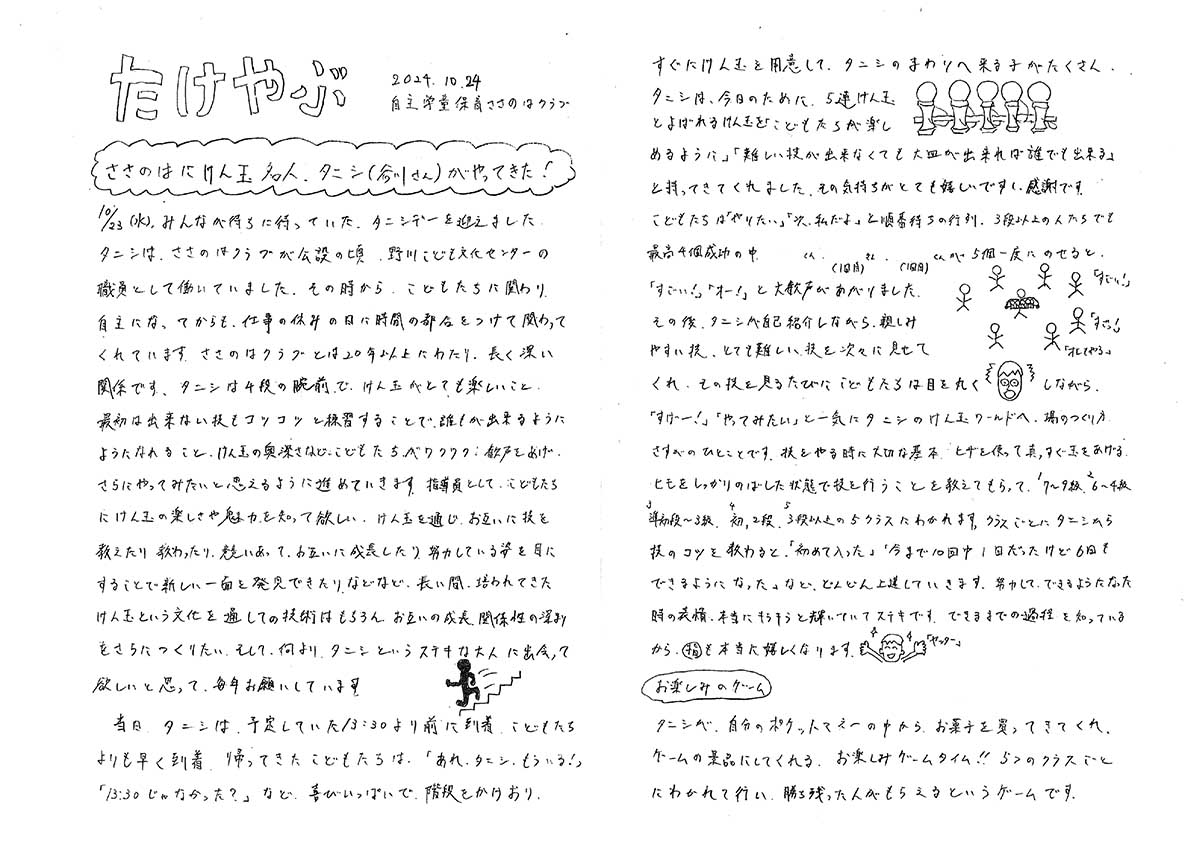 たけやぶ
2024.10.24
自主学童保育ささのはクラブ
ささのはにけん玉名人、タニシ(谷川さん)がやってきた!
10/23(水)、みんなが待ちに待っていた、タニシデーを迎えました。
タニシは、ささのはクラブが公設の頃、野川こども文化センターの
職員として働いていました。その時から、こどもたちに関わり、
自主になってからも、仕事の休みの日に時間の都合をつけて関わって
くれています。ささのはクラブとは20年以上にわたり、長く深い
関係です。タニシは4段の腕前で、けん玉がとても楽しいこと、
最初は出来ない技もコツコツと練習することで、誰もが出来るように
ようになれること、けん玉の奥深さなど、こどもたちがワクワク、歓声をあげ、
さらにやってみたいと思えるように進めていきます。指導員として、こどもたち
にけん玉の楽しさや魅力を知って欲しい、けん玉を通じ、お互いに技を
教えたり教わったり、競いあって、お互いに成長したり努力している姿を目に
することで新しい一面を発見できたり、などなど、長い間、培われてきた
けん玉という文化を通しての技術はもちろん、お互いの成長、関係性の深まり
をさらにつくりたい、そして、何より、タニシというステキな大人に出会って
欲しいと思って、毎年お願いしています。
当日、タニシは、予定していた13:30より前に到着、こどもたち
よりも早く到着、帰ってきたこどもたちは、「あれ、タニシ、もういる!」
「13:30じゃなかった?」など、喜びいっぱいで、階段をかけおり、
すぐにけん玉を用意して、タニシのまわりへ来る子がたくさん。
タニシは、今日のために、5連けん玉
とよばれるけん玉を「こどもたちが楽し
めるように」「難しい技が出来なくても大皿が出来れば誰でも出来る」
と持ってきてくれました。その気持ちがとても嬉しいですし、感謝です。
こどもたちは「やりたい」「次、私だよ」と順番待ちの行列。3段以上の人たちでも
最高4個成功の中、くん(1回目)、さん(1回目)、くんが5個一度にのせると、
「すごい!」「オー!」と大歓声があがりました。
「すごい!」
「すごっ!」
「オレもやる」
その後、タニシが自己紹介しながら、親しみ
やすい技、とても難しい技を次々に見せて
くれ、その技を見るたびにこどもたちは目を丸くしながら、
「すげー!」「やってみたい」と一気にタニシのけん玉ワールドへ。場のつくり方
さすがのひとことです。技をやる時に大切な基本、ヒザを使って真っすぐ玉をあげる。
ヒモをしっかりのばした状態で技を行うことを教えてもらって、1 7〜9級、2 6〜4級
3 準初段〜3級、4 初、2段、5 3段以上の5クラスにわかれます。クラスごとにタニシから
技のコツを教わると、「初めて入った」「今まで10回中1回だったけど6回も
できるようになった」など、どんどん上達していきます。努力して、できるようになった
時の表情、本当にキラキラと輝いていてステキです。できるまでの過程を知っている
から、指も本当に嬉しくなります。
「ヤッター」
お楽しみのゲーム
タニシが、自分のポケットマネーの中から、お菓子を買ってきてくれ、
ゲームの景品にしてくれる、お楽しみゲームタイム!!5つのクラスごと
にわかれて行い、勝ち残った人がもらえるというゲームです。